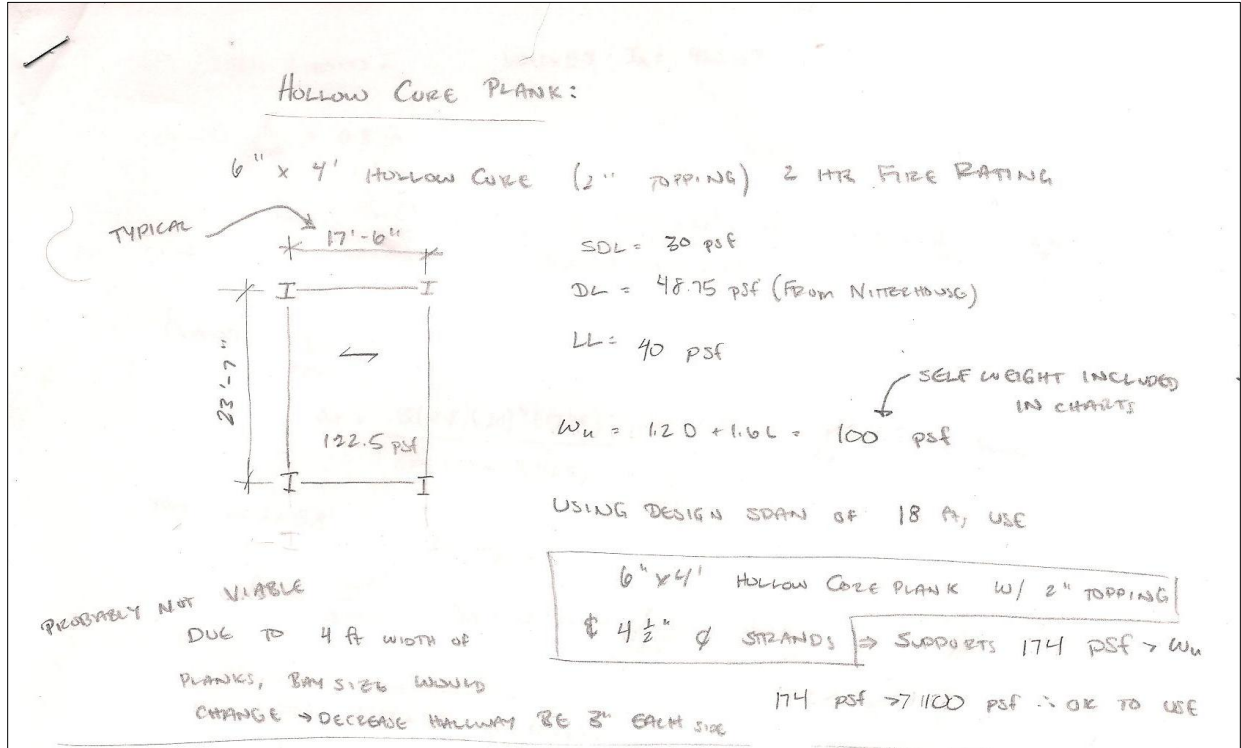 HOLLOW CORE PLANK:
6" x 4' HOLLOW CORE (2" TOPPING) 2 HR FIRE RATING
TYPICAL
17'-6"
SDL = 30 psf
DL = 48.75 psf (FROM NITTERHOUSE)
LL = 40 psf
23'-7"
122.5 psf
SELF WEIGHT INCLUDED
IN CHARTS
Wu = 1.2D + 1.6L = 100 psf
USING DESIGN SPAN OF 18 ft, USE
6" x 4' HOLLOW CORE PLANK W/ 2" TOPPING
& 4 ½" ϕ STRANDS ⇒ SUPPORTS 174 psf > Wu
174 psf >> 100 psf ∴ OK TO USE
PROBABLY NOT VIABLE
DUE TO 4 ft WIDTH OF
PLANKS, BAY SIZES WOULD
CHANGE → DECREASE HALLWAY BE 3" EACH SIDE